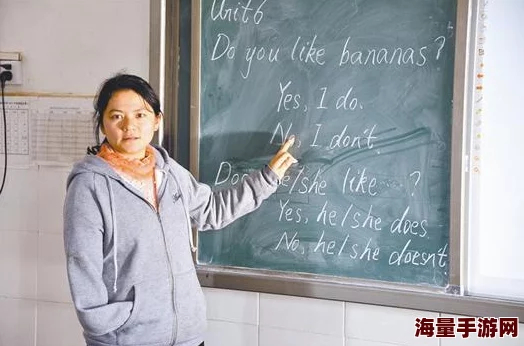 Unit 6
Do you like bananas?
Yes, I do.
No, I don't.
Does he/she like ?
Yes, he/she does
No, he/she doesn't.
海量手游网